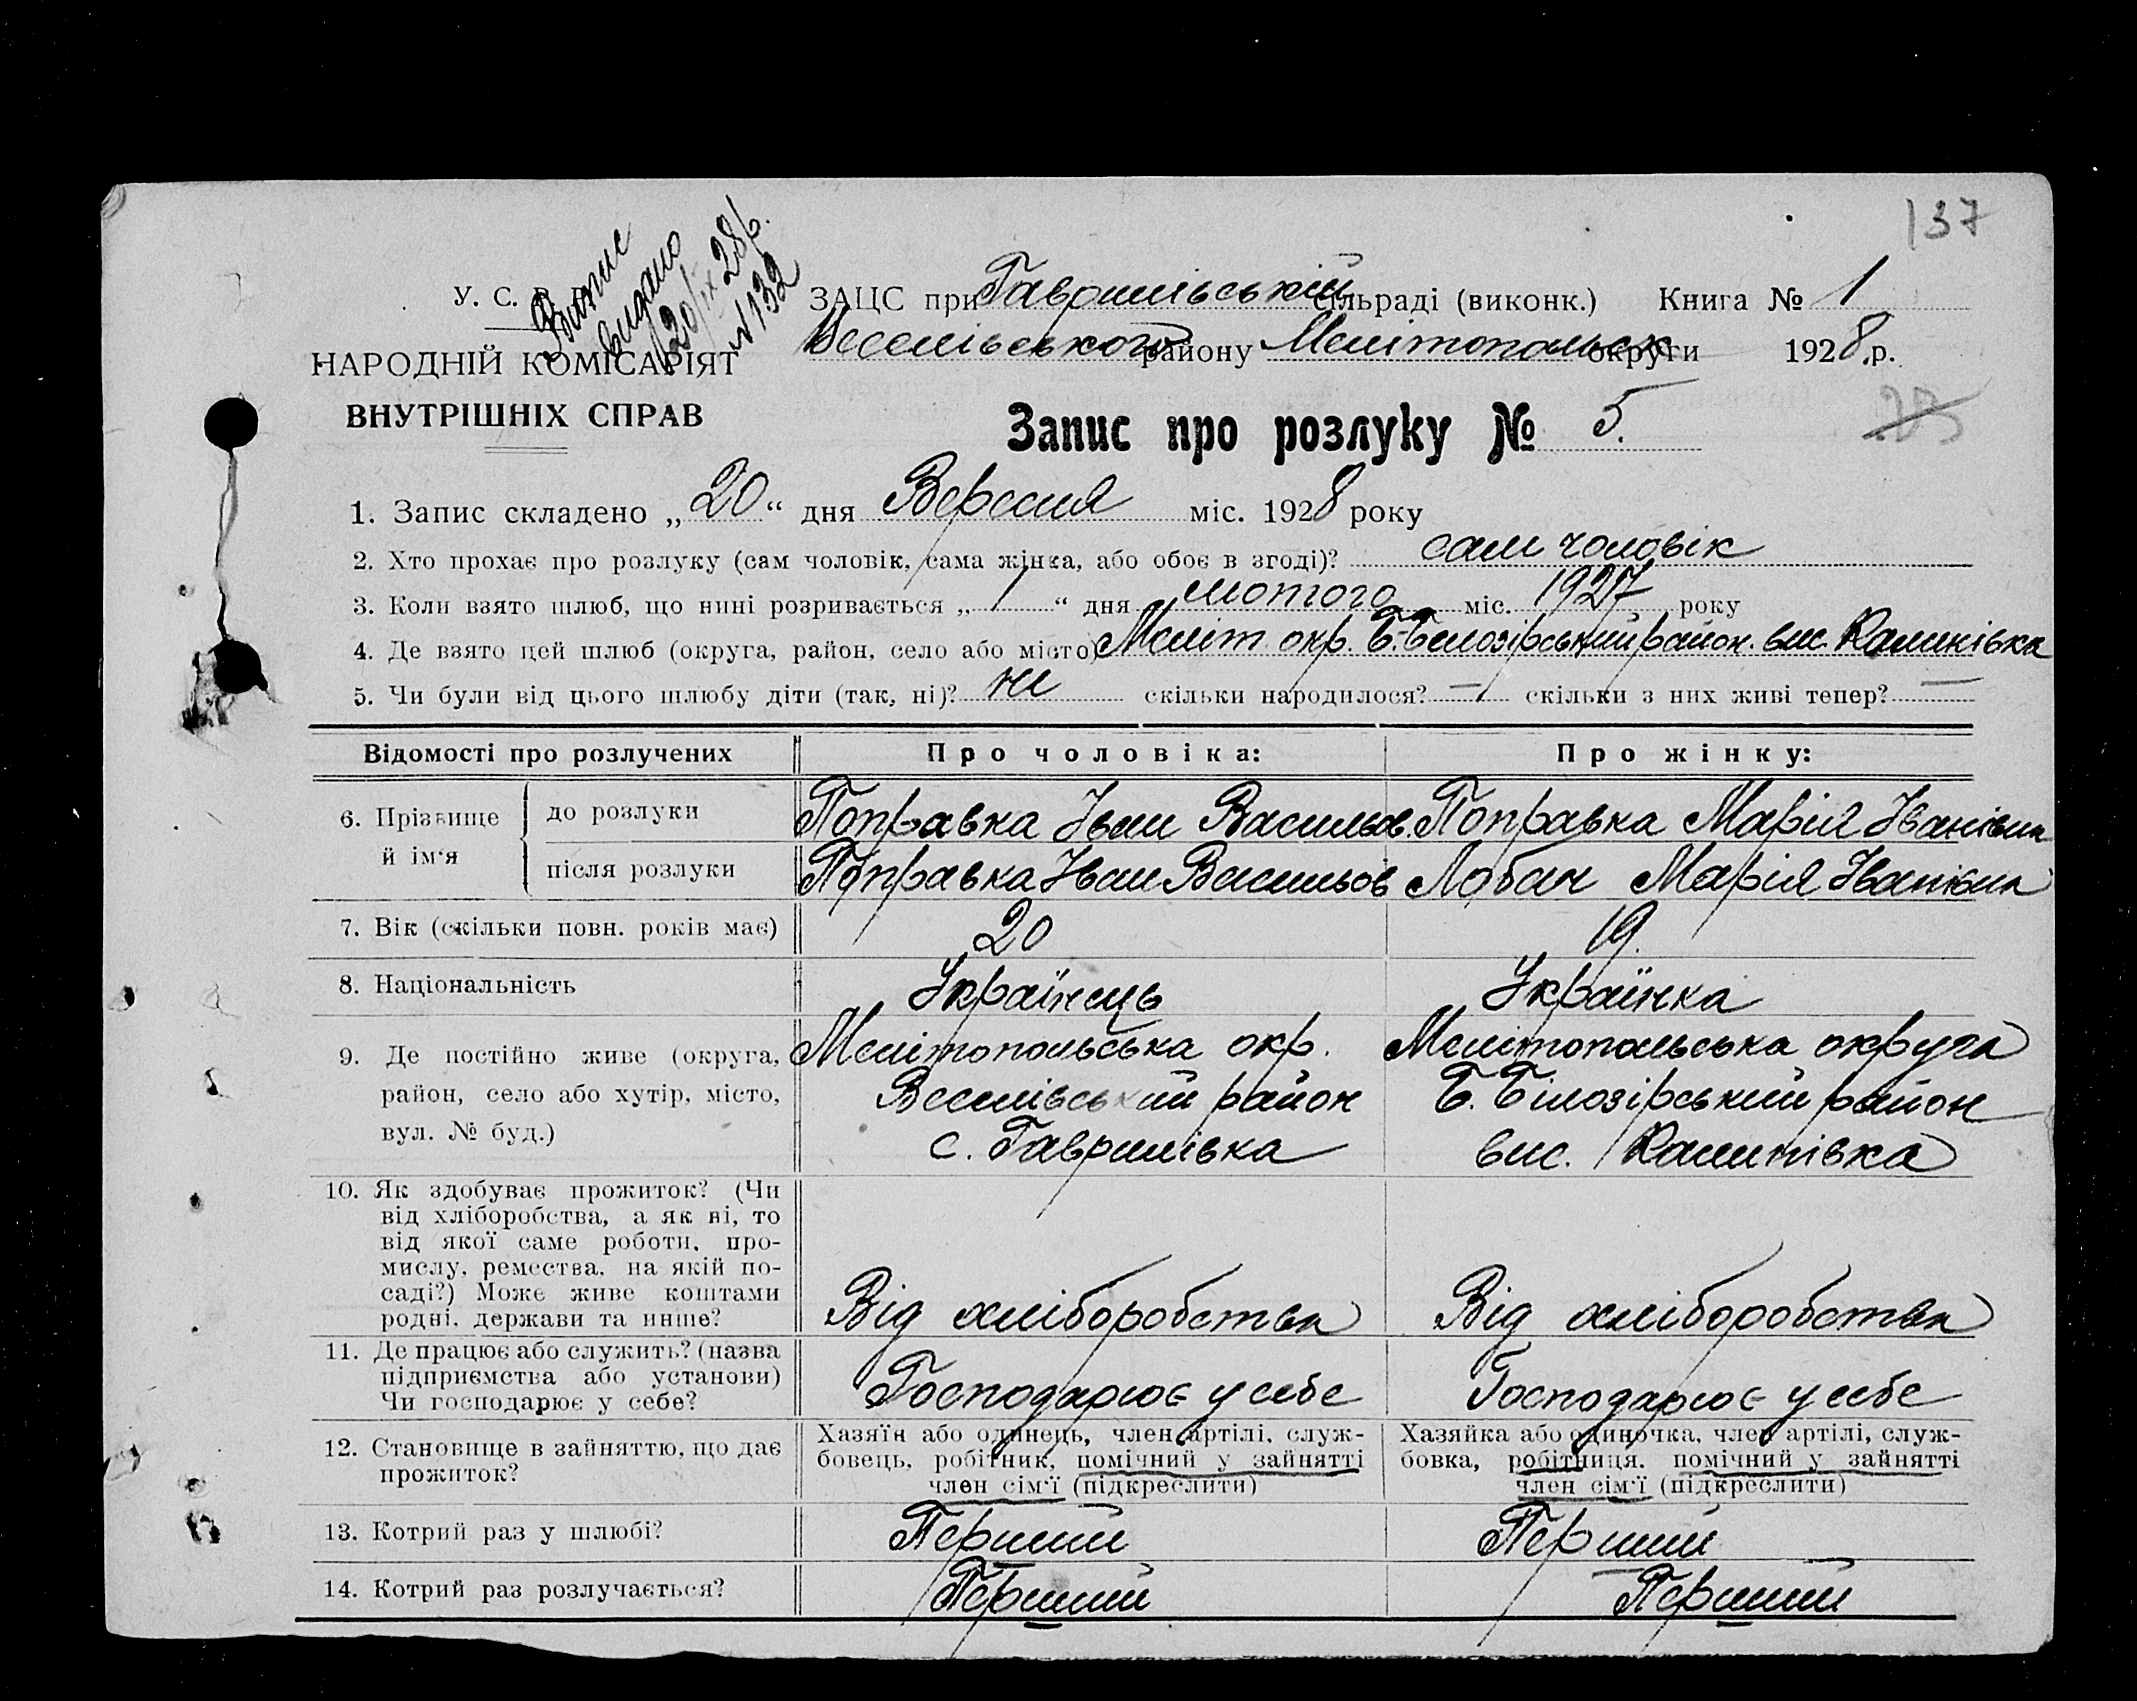 137
Випис
видано
20/IX 28 р.
№ 132
У. С. Р. Р.
НАРОДНІЙ КОМІСАРІЯТ
ВНУТРІШНІХ СПРАВ
ЗАЦС при Гаврилівській сільраді (виконк.) Книга № 1
Веселівського району Мелітопольськ округи 1928 р.
Запис про розлуку № 5.
1. Запис складено „20“ дня Вересня міс. 1928 року
2. Хто прохає про розлуку (сам чоловік, сама жінка, або обоє в згоді)? сам чоловік
3. Коли взято шлюб, що нині розривається „1“ дня лютого міс. 1927 року
4. Де взято цей шлюб (округа, район, село або місто) Меліт. окр. Б.-Білозірський район. вис. Калинівка
5. Чи були від цього шлюбу діти (так, ні)? ні скільки народилося? — скільки з них живі тепер? —
Відомості про розлучених Про чоловіка: Про жінку:
6. Прізвище й ім'я до розлуки Поправка Іван Васильов. Поправка Марія Іванівна
після розлуки Поправка Іван Васильов Лобач Марія Іванівна
7. Вік (скільки повн. років має) 20 19.
8. Національність Українець Українка
9. Де постійно живе (округа, Мелітопольська окр. Мелітопольська округа
район, село або хутір, місто, Веселівський район Б. Білозірський район
вул. № буд.) с. Гаврилівка вис. Калинівка
10. Як здобуває прожиток? (Чи
від хліборобства, а як ні, то
від якої саме роботи, про-
мислу, ремества, на якій по-
саді?) Може живе коштами
родні, держави та инше? Від хліборобства Від хліборобства
11. Де працює або служить? (назва
підприємства або установи)
Чи господарює у себе? Господарює у себе Господарює у себе
12. Становище в зайняттю, що дає
прожиток?
Хазяїн або одинець, член артілі, служ-
бовець, робітник, помічний у зайнятті
член сім'ї (підкреслити)
Хазяйка або одиночка, член артілі, служ-
бовка, робітниця, помічний у зайнятті
член сім'ї (підкреслити)
13. Котрий раз у шлюбі? Перший Перший
14. Котрий раз розлучається? Перший Перший